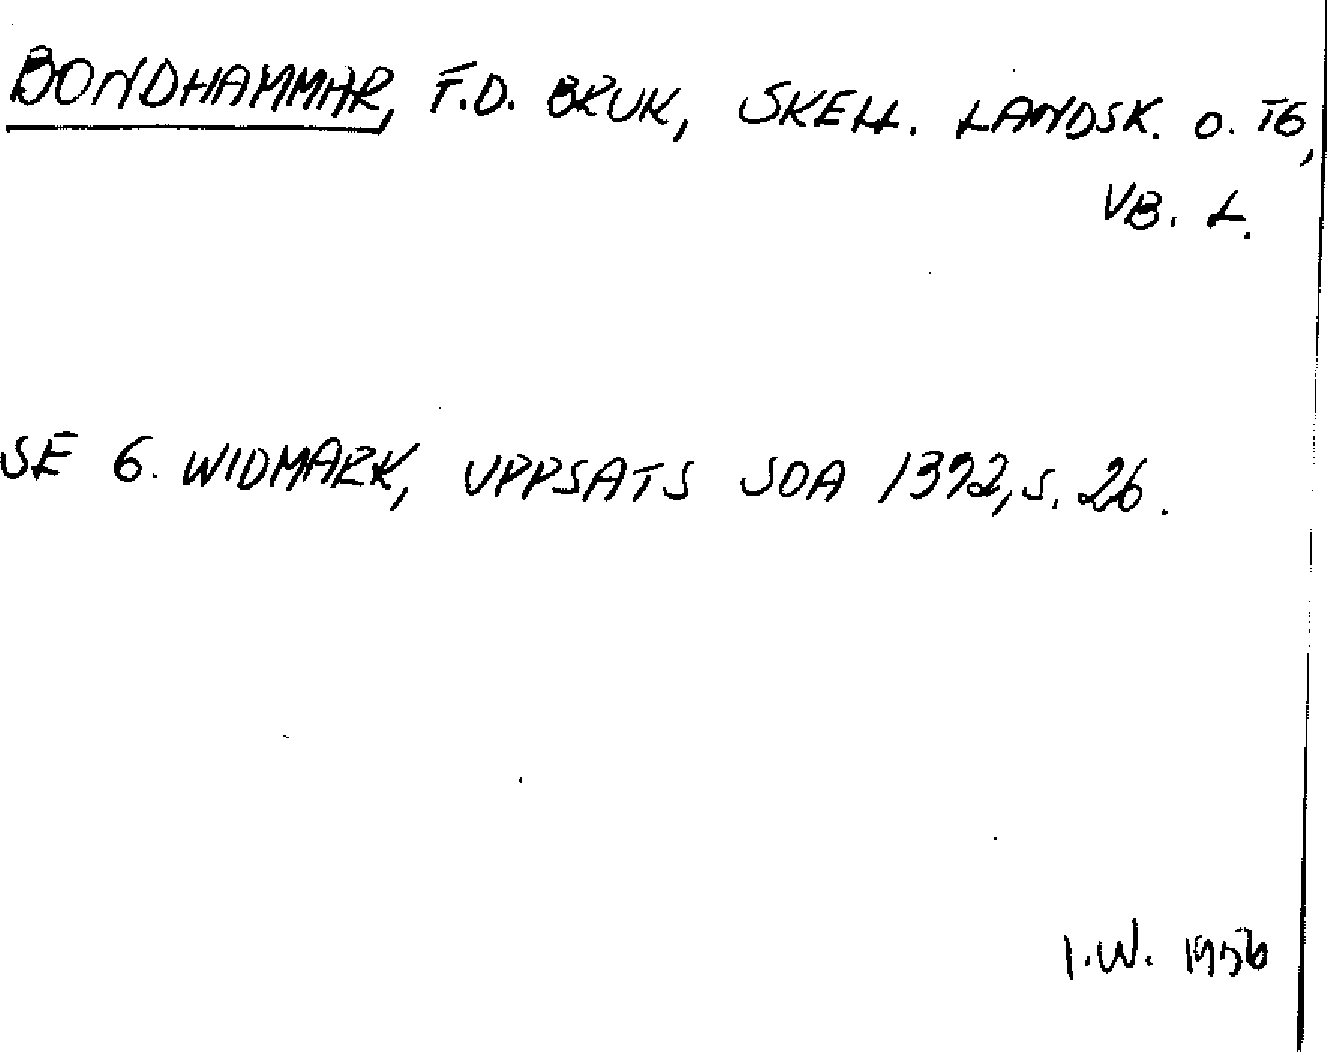 BONDHAMMAR, F.D. BRUK, SKELL. LANDSK. O. TG,
VB. L.
SE G. WIDMARK, UPPSATS SOA 1392, S. 26.
I.W. 1956